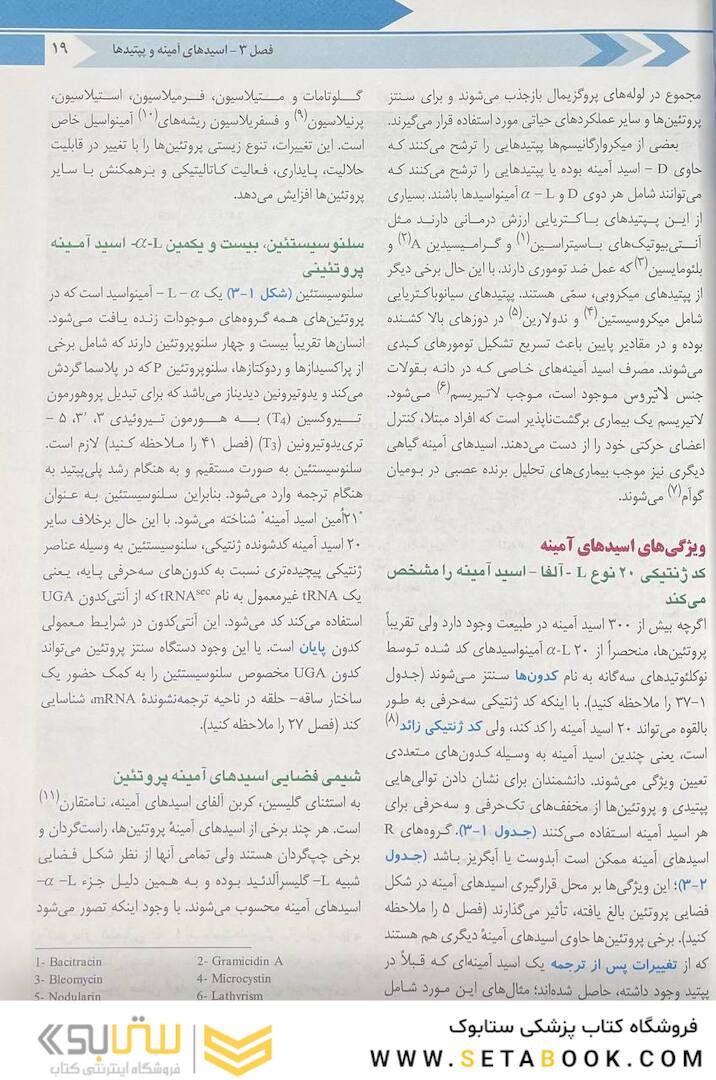 فصل ۳ - اسیدهای آمینه و پپتیدها
۱۹
مجموع در لوله‌های پروگزیمال بازجذب می‌شوند و برای سنتز
پروتئین‌ها و سایر عملکردهای حیاتی مورد استفاده قرار می‌گیرند.
بعضی از میکروارگانیسم‌ها پپتیدهایی را ترشح می‌کنند که
حاوی D – اسید آمینه بوده یا پپتیدهایی را ترشح می‌کنند که
می‌توانند شامل هر دوی D و α – L آمینواسیدها باشند. بسیاری
از این پپتیدهای باکتریایی ارزش درمانی دارند مثل
آنتی‌بیوتیک‌های باسیتراسین(۱) و گرامیسیدین A(۲) و
بلئومایسین(۳) که عمل ضد توموری دارند. با این حال برخی دیگر
از پپتیدهای میکروبی، سمّی هستند. پپتیدهای سیانوباکتریایی
شامل میکروسیستین(۴) و ندولارین(۵) در دوزهای بالا کشنده
بوده و در مقادیر پایین باعث تسریع تشکیل تومورهای کبدی
می‌شوند. مصرف اسید آمینه‌های خاصی که در دانه بقولات
جنس لاتیروس موجود است، موجب لاتیریسم(۶) می‌شود.
لاتیریسم یک بیماری برگشت‌ناپذیر است که افراد مبتلا، کنترل
اعضای حرکتی خود را از دست می‌دهند. اسیدهای آمینه گیاهی
دیگری نیز موجب بیماری‌های تحلیل برنده عصبی در بومیان
گوآم(۷) می‌شوند.
ویژگی‌های اسیدهای آمینه
کد ژنتیکی ۲۰ نوع L - آلفا - اسید آمینه را مشخص
می‌کند
اگرچه بیش از ۳۰۰ اسید آمینه در طبیعت وجود دارد ولی تقریباً
پروتئین‌ها، منحصراً از ۲۰ α-L آمینواسیدهای کد شده توسط
نوکلئوتیدهای سه‌گانه به نام کدون‌ها سنتز می‌شوند (جدول
۱-۳۷ را ملاحظه کنید). با اینکه کد ژنتیکی سه‌حرفی به طور
بالقوه می‌تواند ۲۰ اسید آمینه را کد کند، ولی کد ژنتیکی زائد(۸)
است، یعنی چندین اسید آمینه به وسیله کدون‌های متعددی
تعیین ویژگی می‌شوند. دانشمندان برای نشان دادن توالی‌هایی
پپتیدی و پروتئین‌ها از مخفف‌های تک‌حرفی و سه‌حرفی برای
هر اسید آمینه استفاده می‌کنند (جدول ۱-۳). گروه‌های R
اسیدهای آمینه ممکن است آبدوست یا آبگریز باشد (جدول
۲-۳)؛ این ویژگی‌ها بر محل قرارگیری اسیدهای آمینه در شکل
فضایی پروتئین بالغ یافته، تأثیر می‌گذارند (فصل ۵ را ملاحظه
کنید). برخی پروتئین‌ها حاوی اسیدهای آمینهٔ دیگری هم هستند
که از تغییرات پس از ترجمه یک اسید آمینه‌ای که قبلاً در
پپتید وجود داشته، حاصل شده‌اند؛ مثال‌های این مورد شامل
گلوتامات و متیلاسیون، فرمیلاسیون، استیلاسیون،
پرنیلاسیون(۹) و فسفریلاسیون ریشه‌های(۱۰) آمینواسیل خاص
است. این تغییرات، تنوع زیستی پروتئین‌ها را با تغییر در قابلیت
حلالیت، پایداری، فعالیت کاتالیتیکی و برهمکنش با سایر
پروتئین‌ها افزایش می‌دهد.
سلنوسیستئین، بیست و یکمین α-L- اسید آمینه
پروتئینی
سلنوسیستئین (شکل ۱-۳) یک α – L – آمینواسید است که در
پروتئین‌های همه گروه‌های موجودات زنده یافت می‌شود.
انسان‌ها تقریباً بیست و چهار سلنوپروتئین دارند که شامل برخی
از پراکسیدازها و ردوکتازها، سلنوپروتئین P که در پلاسما گردش
می‌کند و یدوتیرونین دیدیناز می‌باشد که برای تبدیل پروهورمون
تیروکسین (T4) به هورمون تیروئیدی ۳، ۳′، ۵ –
تری‌یدوتیرونین (T3) (فصل ۴۱ را ملاحظه کنید) لازم است.
سلنوسیستئین به صورت مستقیم و به هنگام رشد پلی‌پپتید به
هنگام ترجمه وارد می‌شود. بنابراین سلنوسیستئین به عنوان
"۲۱اُمین اسید آمینه" شناخته می‌شود. با این حال برخلاف سایر
۲۰ اسید آمینه کدشونده ژنتیکی، سلنوسیستئین به وسیله عناصر
ژنتیکی پیچیده‌تری نسبت به کدون‌های سه‌حرفی پایه، یعنی
یک tRNA غیرمعمول به نام tRNAsec که از آنتی‌کدون UGA
استفاده می‌کند کد می‌شود. این آنتی‌کدون در شرایط معمولی
کدون پایان است. یا این وجود دستگاه سنتز پروتئین می‌تواند
کدون UGA مخصوص سلنوسیستئین را به کمک حضور یک
ساختار ساقه- حلقه در ناحیه ترجمه‌نشوندهٔ mRNA، شناسایی
کند (فصل ۲۷ را ملاحظه کنید).
شیمی فضایی اسیدهای آمینه پروتئین
به استثنای گلیسین، کربن آلفای اسیدهای آمینه، نامتقارن(۱۱)
است. هر چند برخی از اسیدهای آمینهٔ پروتئین‌ها، راست‌گردان و
برخی چپ‌گردان هستند ولی تمامی آنها از نظر شکل فضایی
شبیه L- گلیسرآلدئید بوده و به همین دلیل جزء α – L-
اسیدهای آمینه محسوب می‌شوند. با وجود اینکه تصور می‌شود
1- Bacitracin
2- Gramicidin A
3- Bleomycin
4- Microcystin
5- Nodularin
6- Lathyrism
فروشگاه کتاب پزشکی ستابوک
WWW.SETABOOK.COM
ستابوک
فروشگاه اینترنتی کتاب